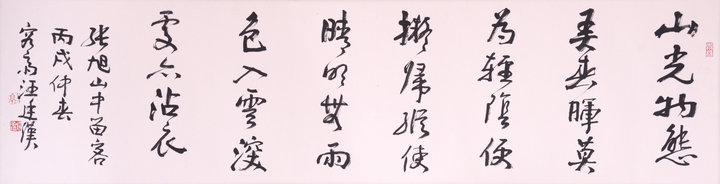 山光物態
弄春暉莫
為輕陰便
擬歸縱使
晴明無雨
色入雲深
處亦沾衣
張旭山中留客
丙戌仲春
汪建漢